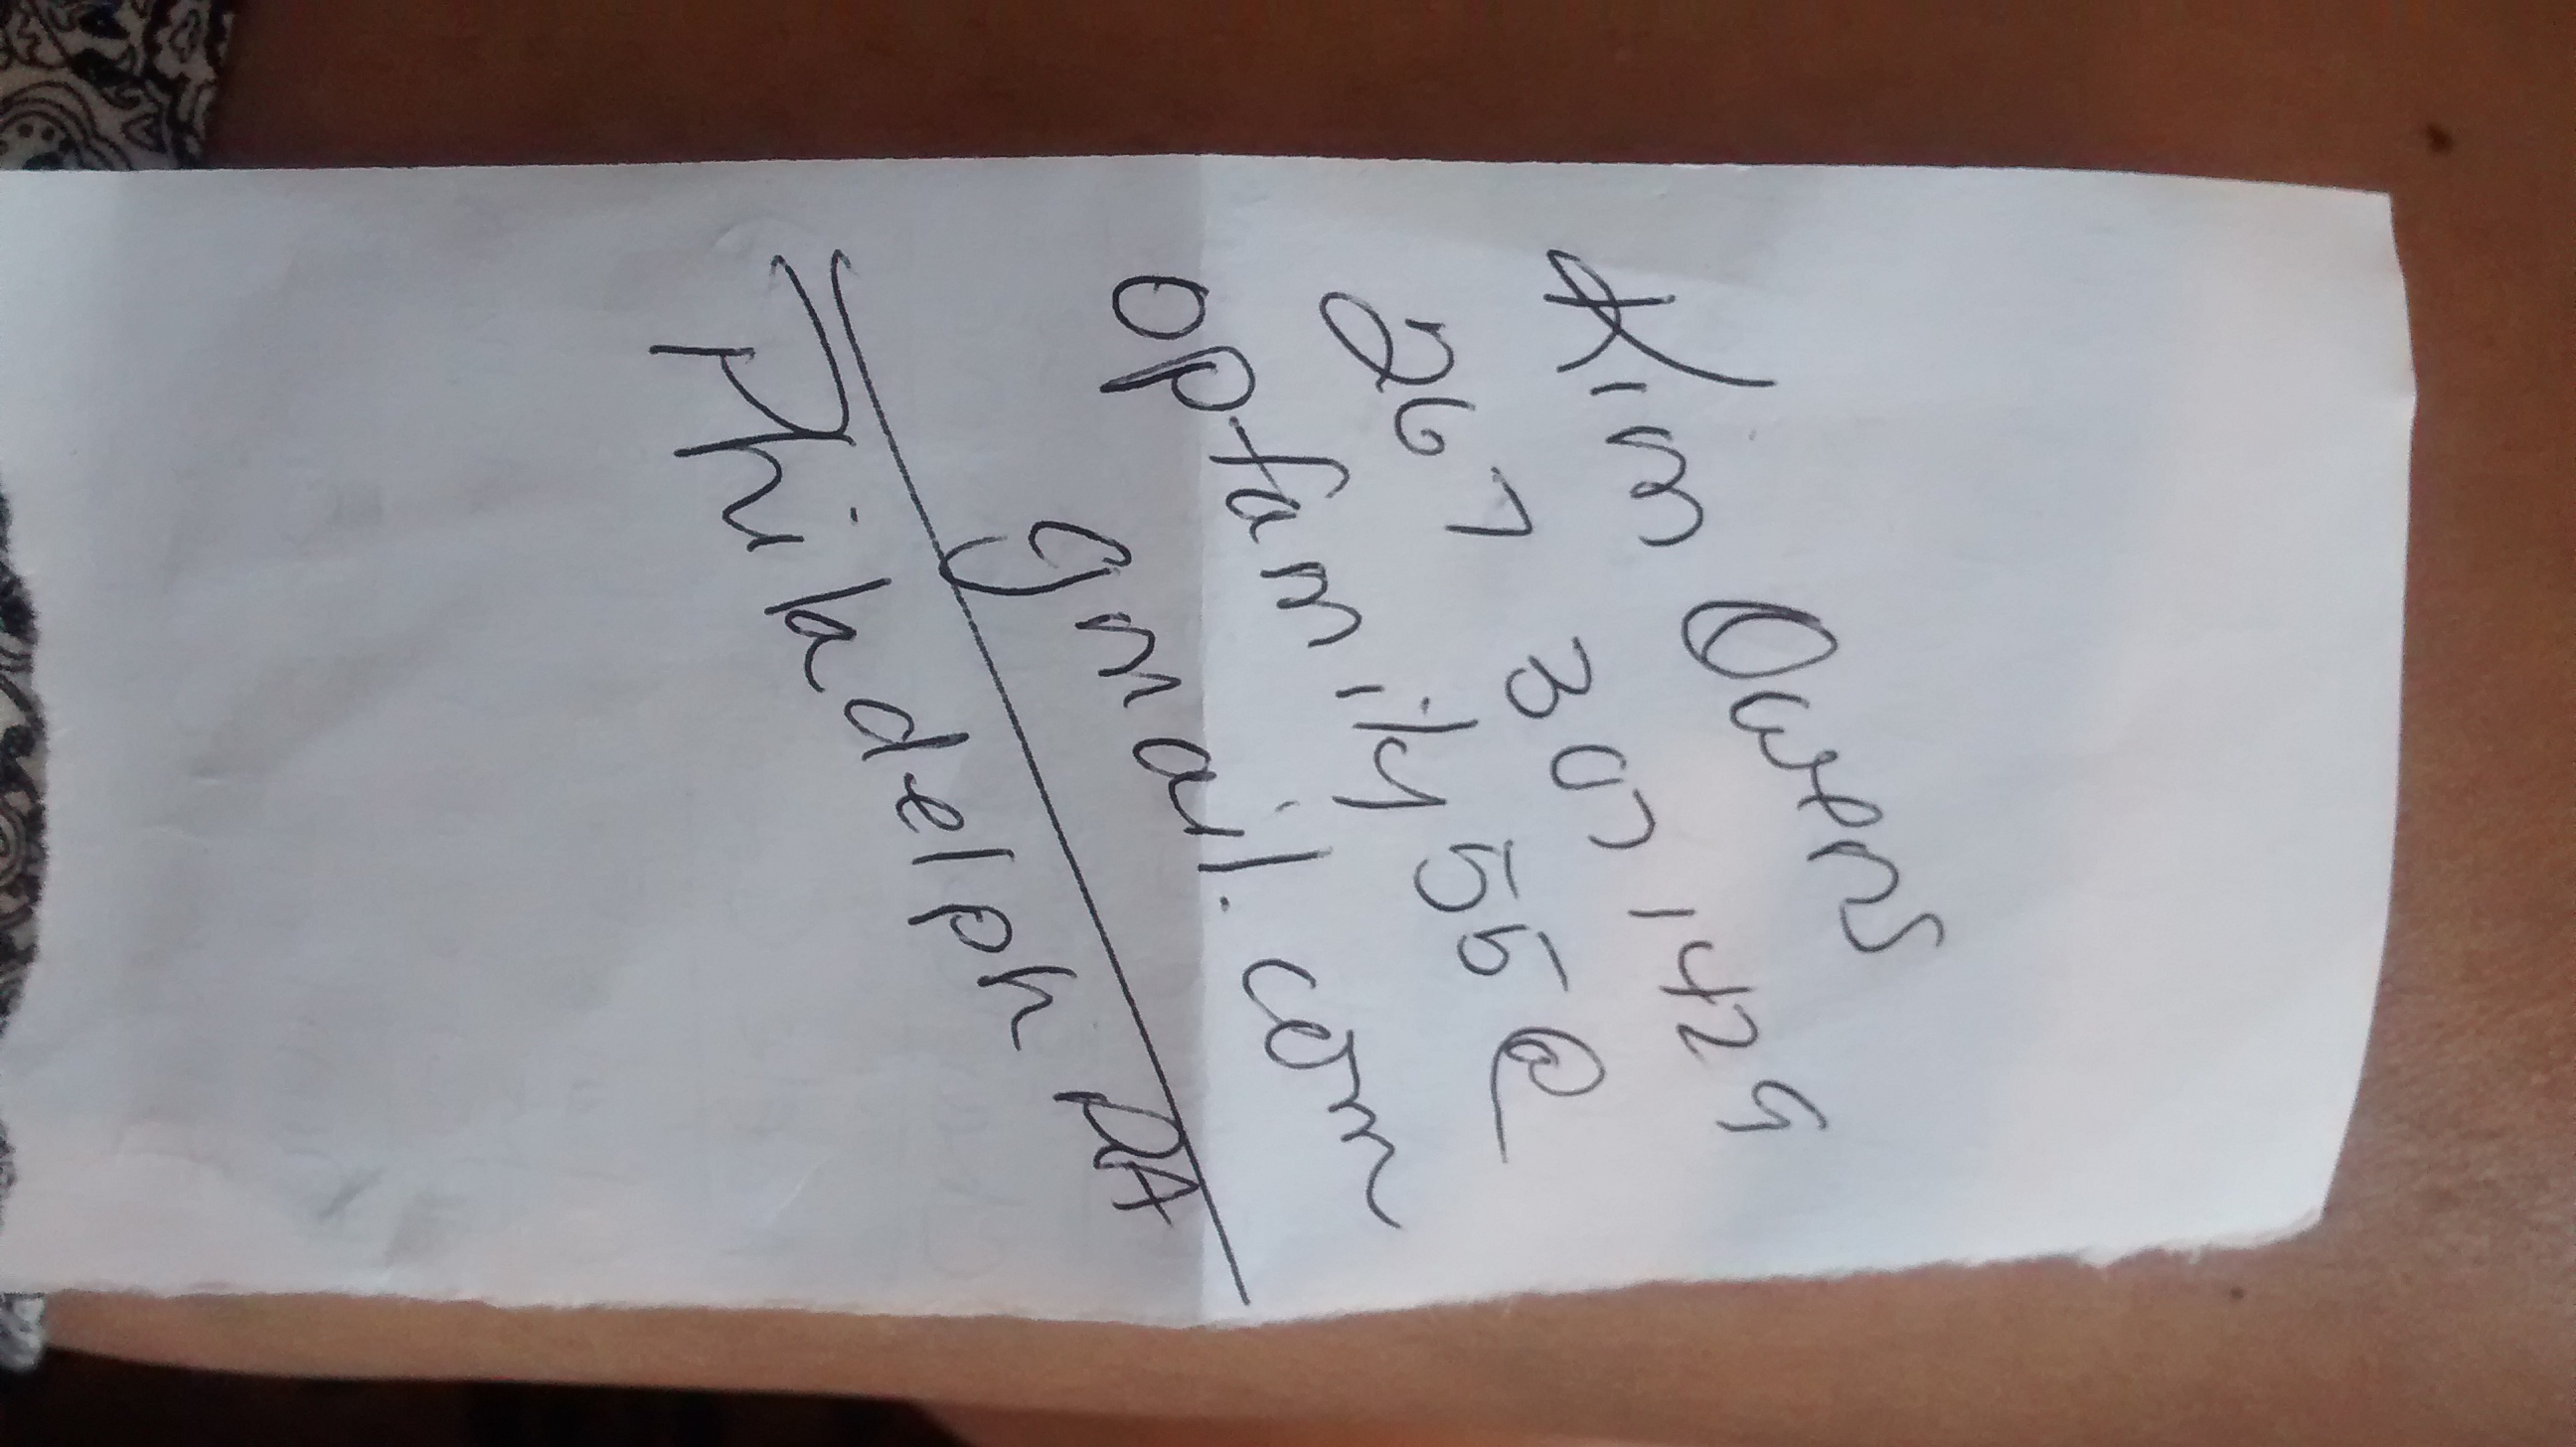 Kim Owens
267 307 1425
opfamily55@
gmail.com
Philadelph PA